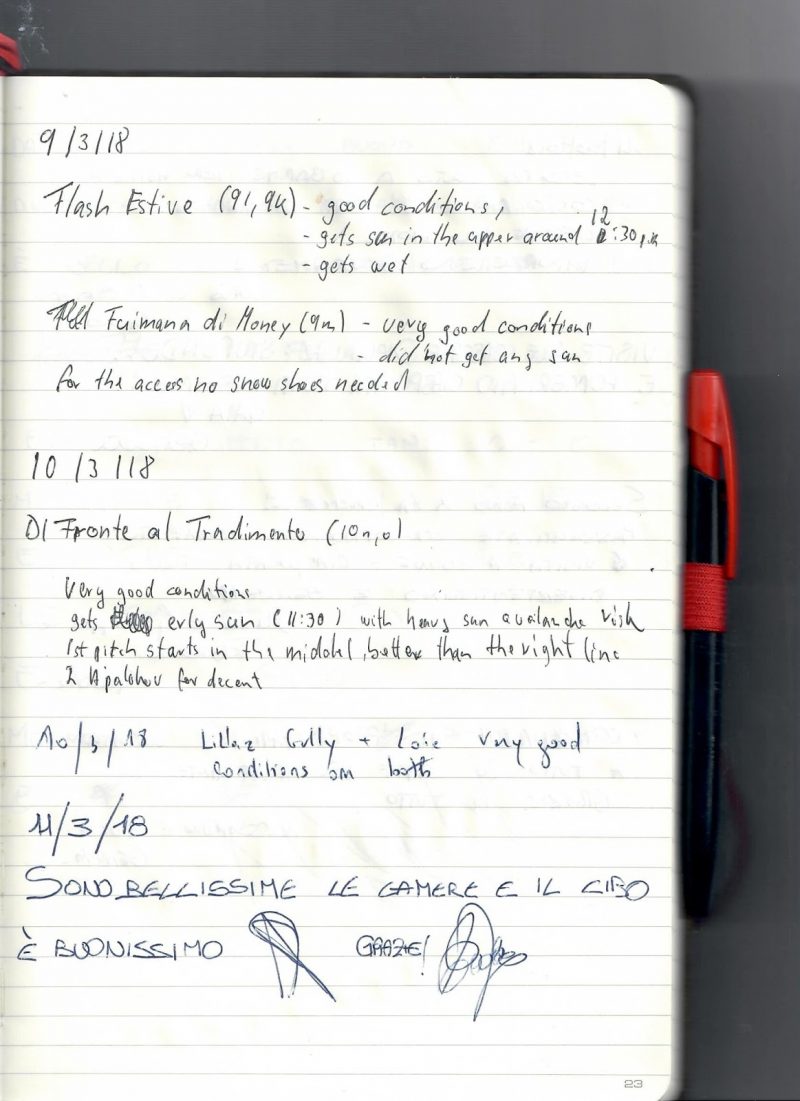 9/3/18
Flash Estive (9i, 9k) - good conditions,
12
- gets sun in the upper around :30 p.m
- gets wet
Fuimana di Money (9m) - very good conditions
- did not get any sun
for the access no snow shoes needed
10/3/18
Di Fronte al Tradimento (10n,o)
Very good conditions
gets erly sun (11:30) with heavy sun avalanche risk
1st pitch starts in the middel, better than the right line
2 Apalakov for decent
10/3/18 Lillaz Gully + Loie very good
conditions on both
11/3/18
SONO BELLISSIME LE CAMERE E IL CIBO
È BUONISSIMO GRAZIE!
23